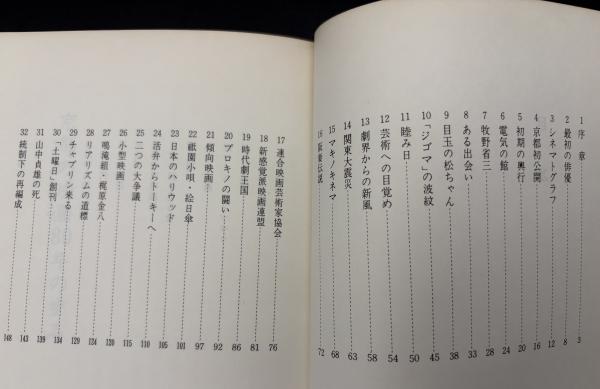 1 序章 3
2 最初の俳優 8
3 シネマトグラフ 12
4 京都初公開 16
5 初期の興行 20
6 電気の館 24
7 牧野省三 28
8 ある出会い 33
9 目玉の松ちゃん 38
10 「ジゴマ」の波紋 45
11 睦み日 50
12 芸術への目覚め 54
13 劇界からの新風 58
14 関東大震災 63
15 マキノキネマ 68
16 72
17 連合映画芸術家協会 76
18 新感覚派映画連盟 81
19 時代劇王国 86
20 プロキノの闘い 92
21 傾向映画 97
22 祇園小唄・絵日傘 97
23 日本のハリウッド 101
24 活弁からトーキーへ 105
25 二つの大争議 110
26 小型映画 115
27 鳴滝組・梶原金八 120
28 リアリズムの道標 124
29 チャプリン来る 129
30 「土曜日」創刊 134
31 山中貞雄の死 139
32 統制下の再編成 143
148